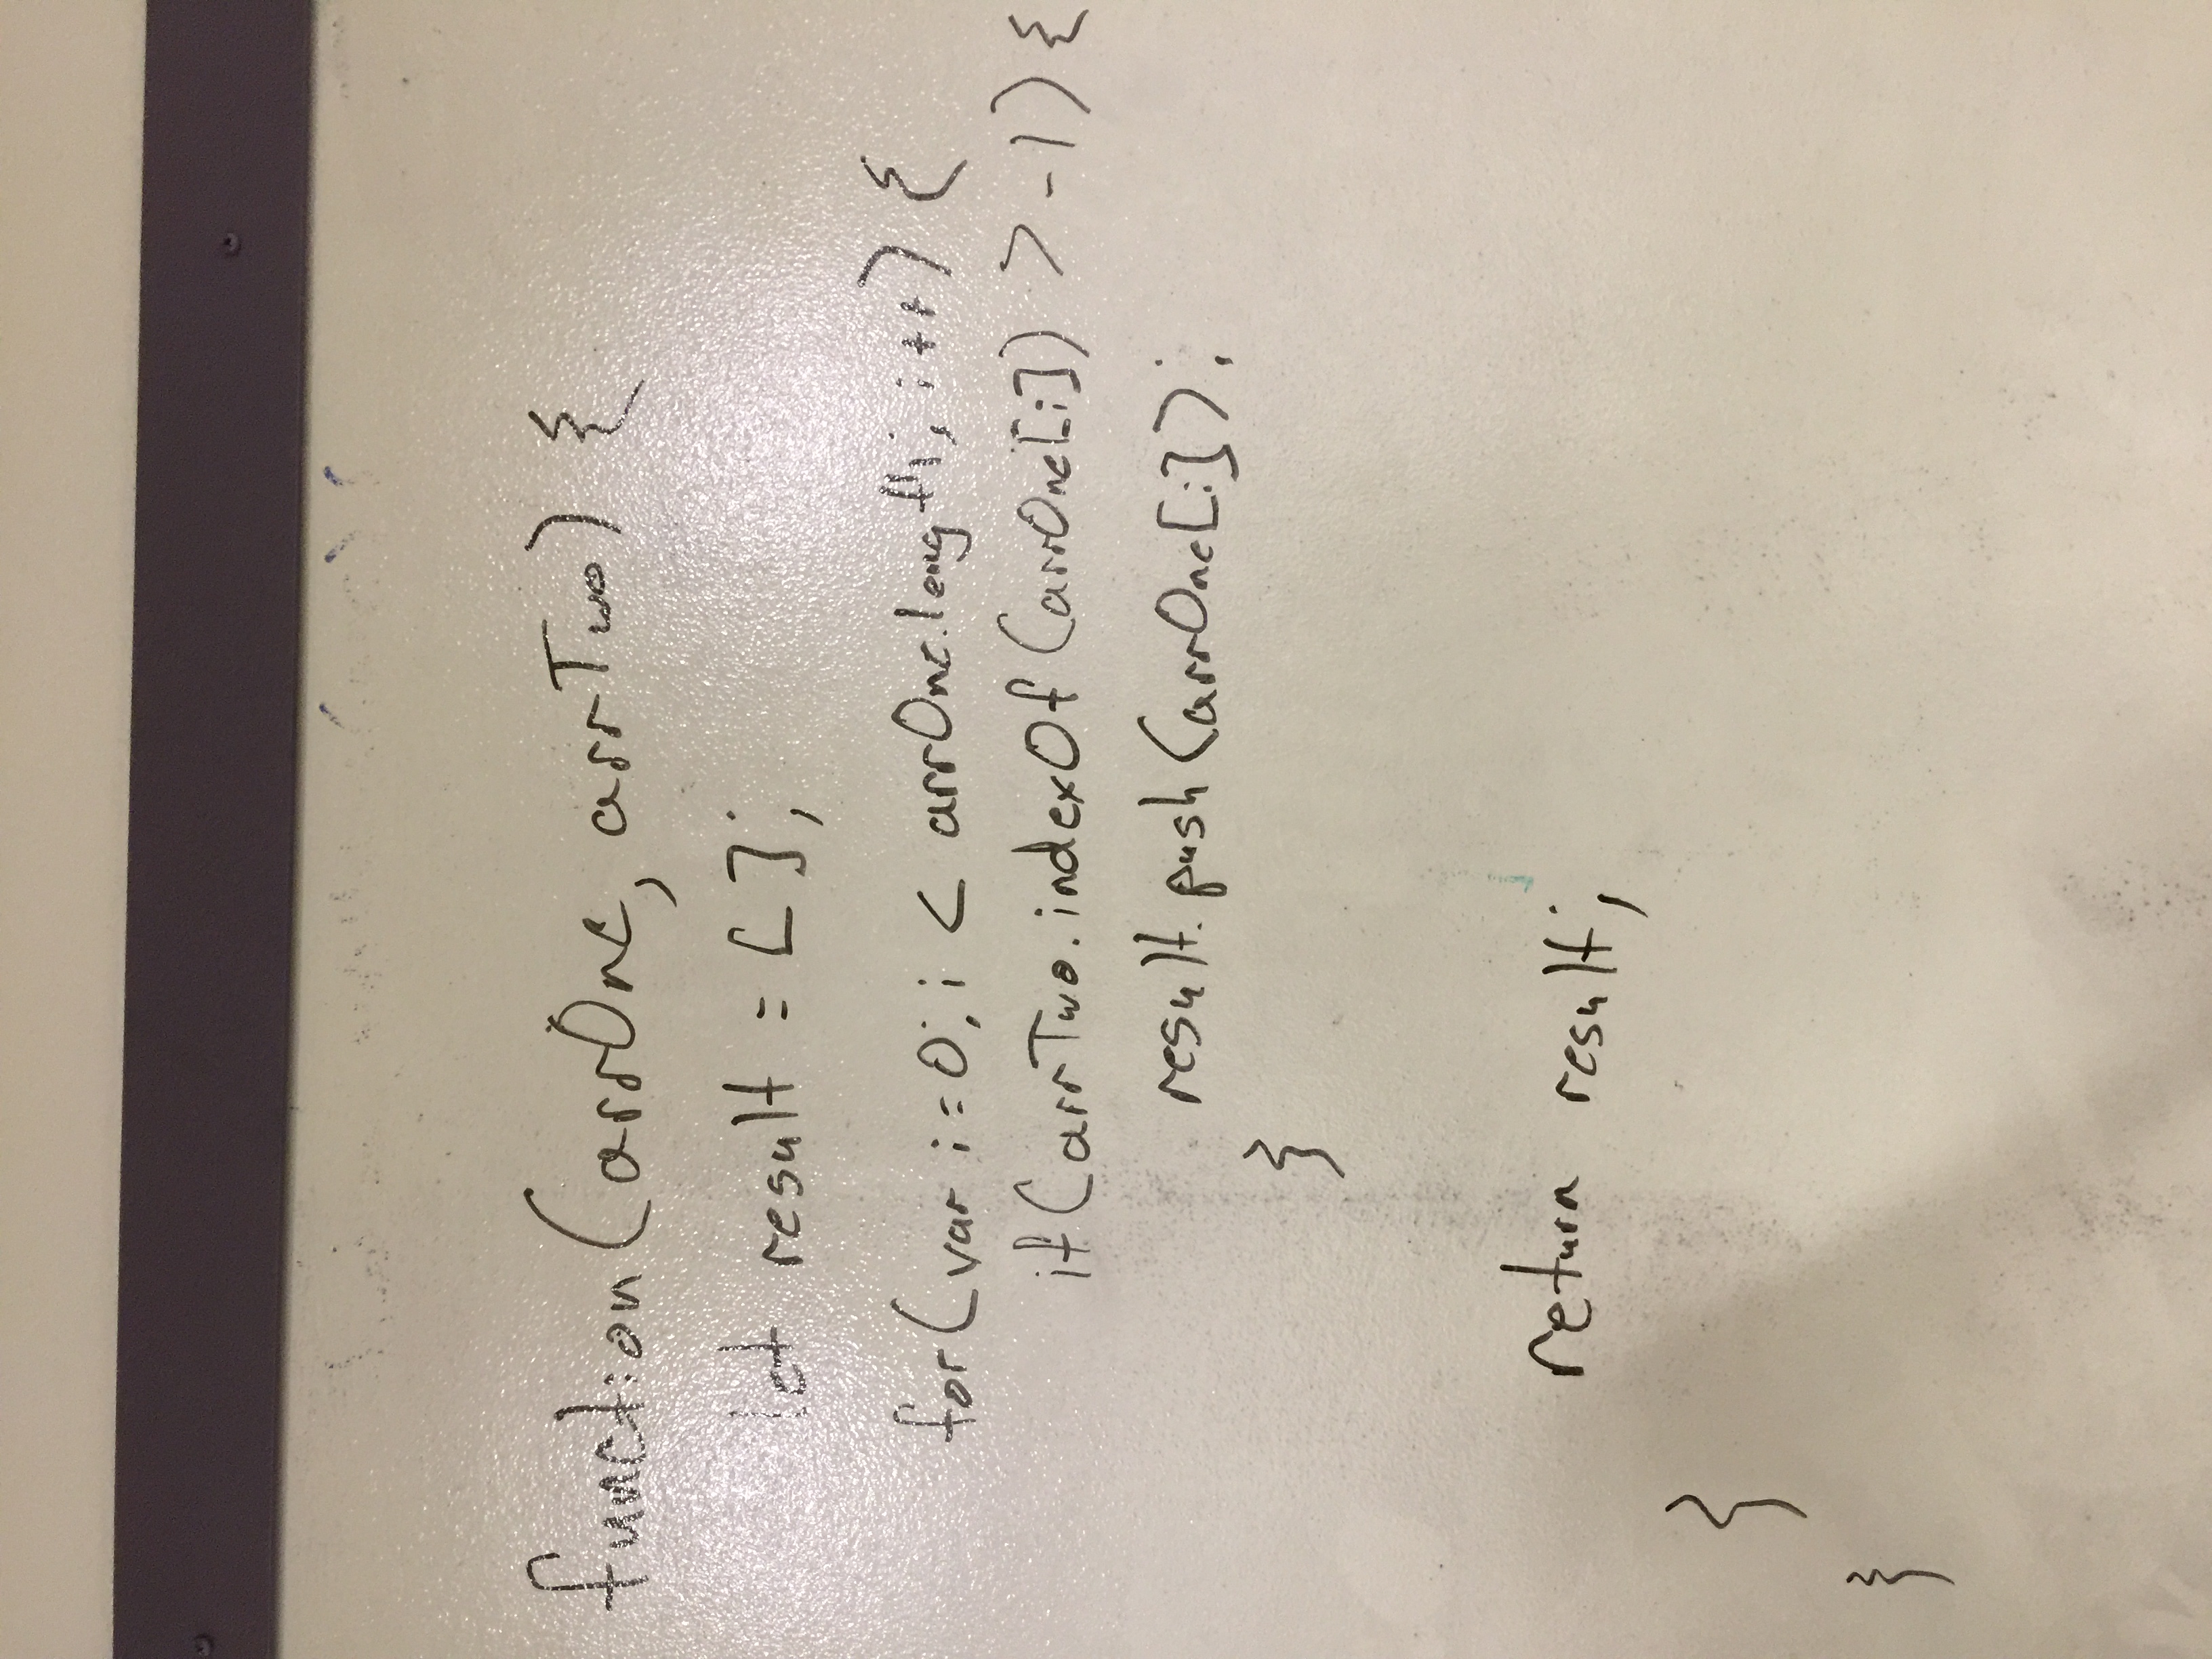 function(arrOne, arrTwo) {
let result = [];
for(var i=0; i < arrOne.length; i++) {
if(arrTwo.indexOf(arrOne[i]) > -1) {
result.push(arrOne[i]);
}
return result;
}
}